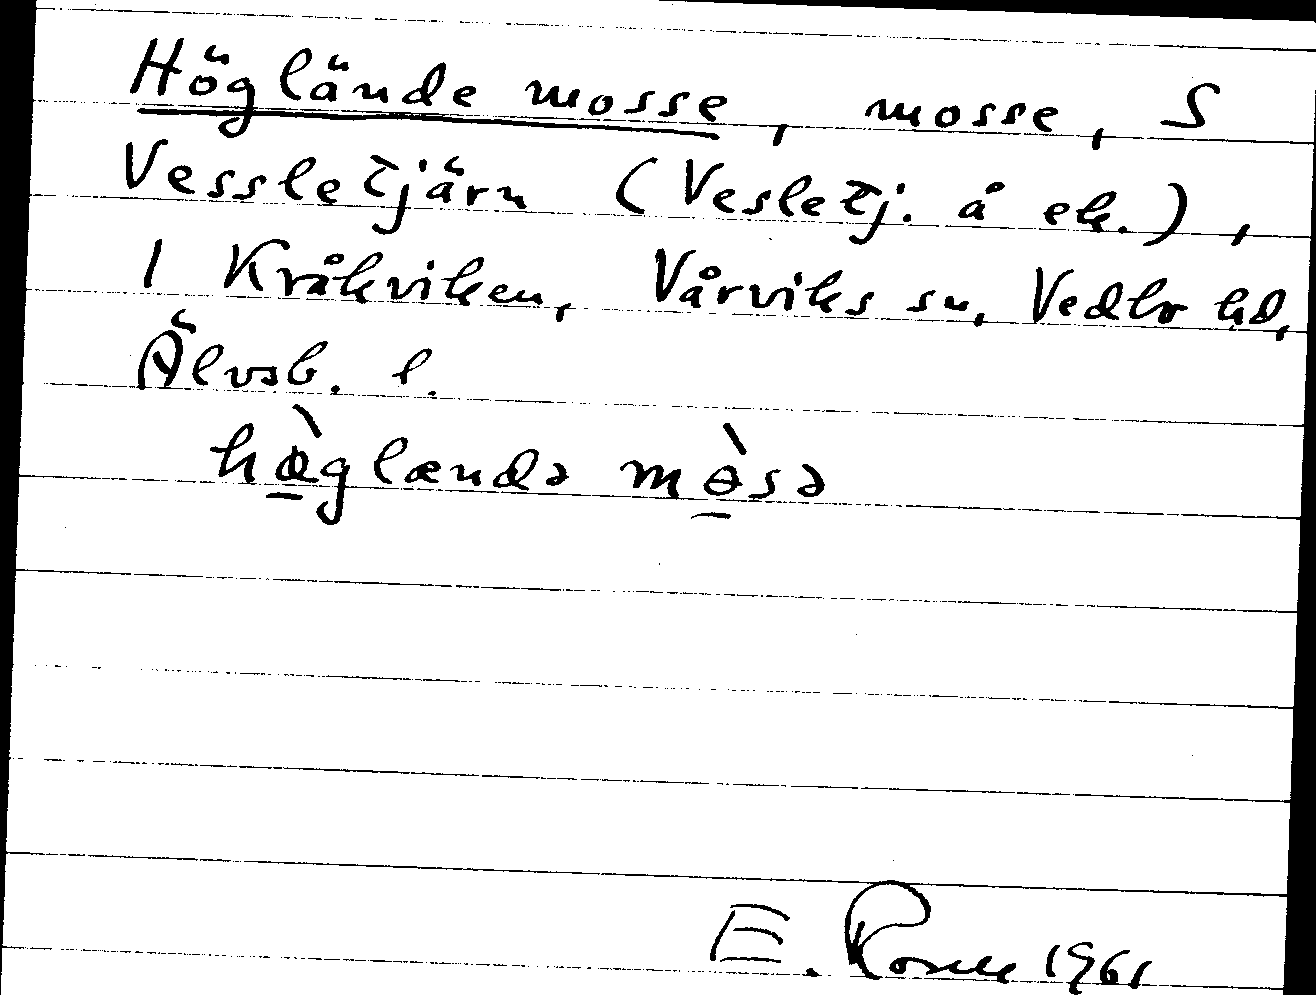 Höglände mosse, mosse, S
Vessletjärn (Vesletj. å ek.),
1 Kråkviken, Vårviks sn, Vedbo hd,
Älvsb. l.
hæ̀glændə mɵ̀sə
E. Rosell 1961